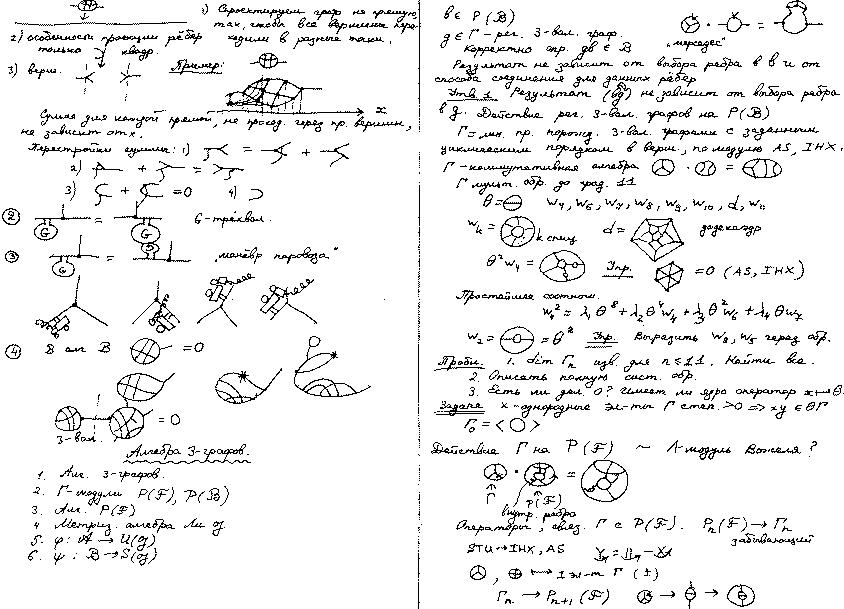 1) Спроектируем граф на прямую
так, чтобы все вершины пере-
ходили в разные точки.
2) особенности проекции рёбер
только квадр.
3) верш.
Пример:
x
Сумма для каждой прямой, не проход. через пр. вершин,
не зависит от x.
Перестройки суммы: 1) = +
2) + =
3) + = 0 4)
② G = G G-трёхвал.
③ G = G "манёвр паровоза"
④ B или B = 0
= 0
3-вал.
Алгебра 3-графов.
1. Алг. 3-графов.
2. Г-модули P(F), P(B)
3. Алг. P(F)
4 Метриз. алгебра Ли g
5. φ: A → U(g)
6. ψ: B → S(g)
b ∈ P(B)
g ∈ Г - рег. 3-вал. граф. "мерседес"
Корректно опр. gb ∈ B
Результат не зависит от выбора ребра в b и от
способа соединения для данных рёбер
Утв 1 Результат (bg) не зависит от выбора ребра
в g. Действие рег. 3-вал. графов на P(B)
Г = лин. пр. порожд. 3-вал. графами с заданным
циклическим порядком в верш., по модулю AS, IHX.
Г - коммутативная алгебра · =
Г мульт. обр. до град. 11
θ = w₄, w₆, w₇, w₈, w₉, w₁₀, d, w₁₁
wₖ = k спиц d = додекаэдр
θ²w₄ = Упр. = 0 (AS, IHX)
Простейшее соотнош.
w₄² = λ₁θ⁸ + λ₂θ⁴w₄ + λ₃θ²w₆ + λ₄θw₇
w₂ = = θ² Упр. Выразить w₃, w₅ через обр.
Пробл. 1. dim Гₙ изв. для n ≤ 11. Найти все.
2. Описать полную сист. обр.
3. Есть ли дел. 0? Имеет ли ядро оператор x ↦ θx
Задача x - однородные эл-ты Г степ. > 0 ⇒ xy ∈ θГ
Г₀ = < >
Действие Г на P(F) ~ Λ-модуль Вожеля?
· =
Г P(F)
внутр. ребра
Операторы, связ. Г с P(F). Pₙ(F) → Гₙ
забывающий
STU → IHX, AS
, ↦ 1 эл-т Г (±)
Гₙ → Pₙ₊₁(F) → →